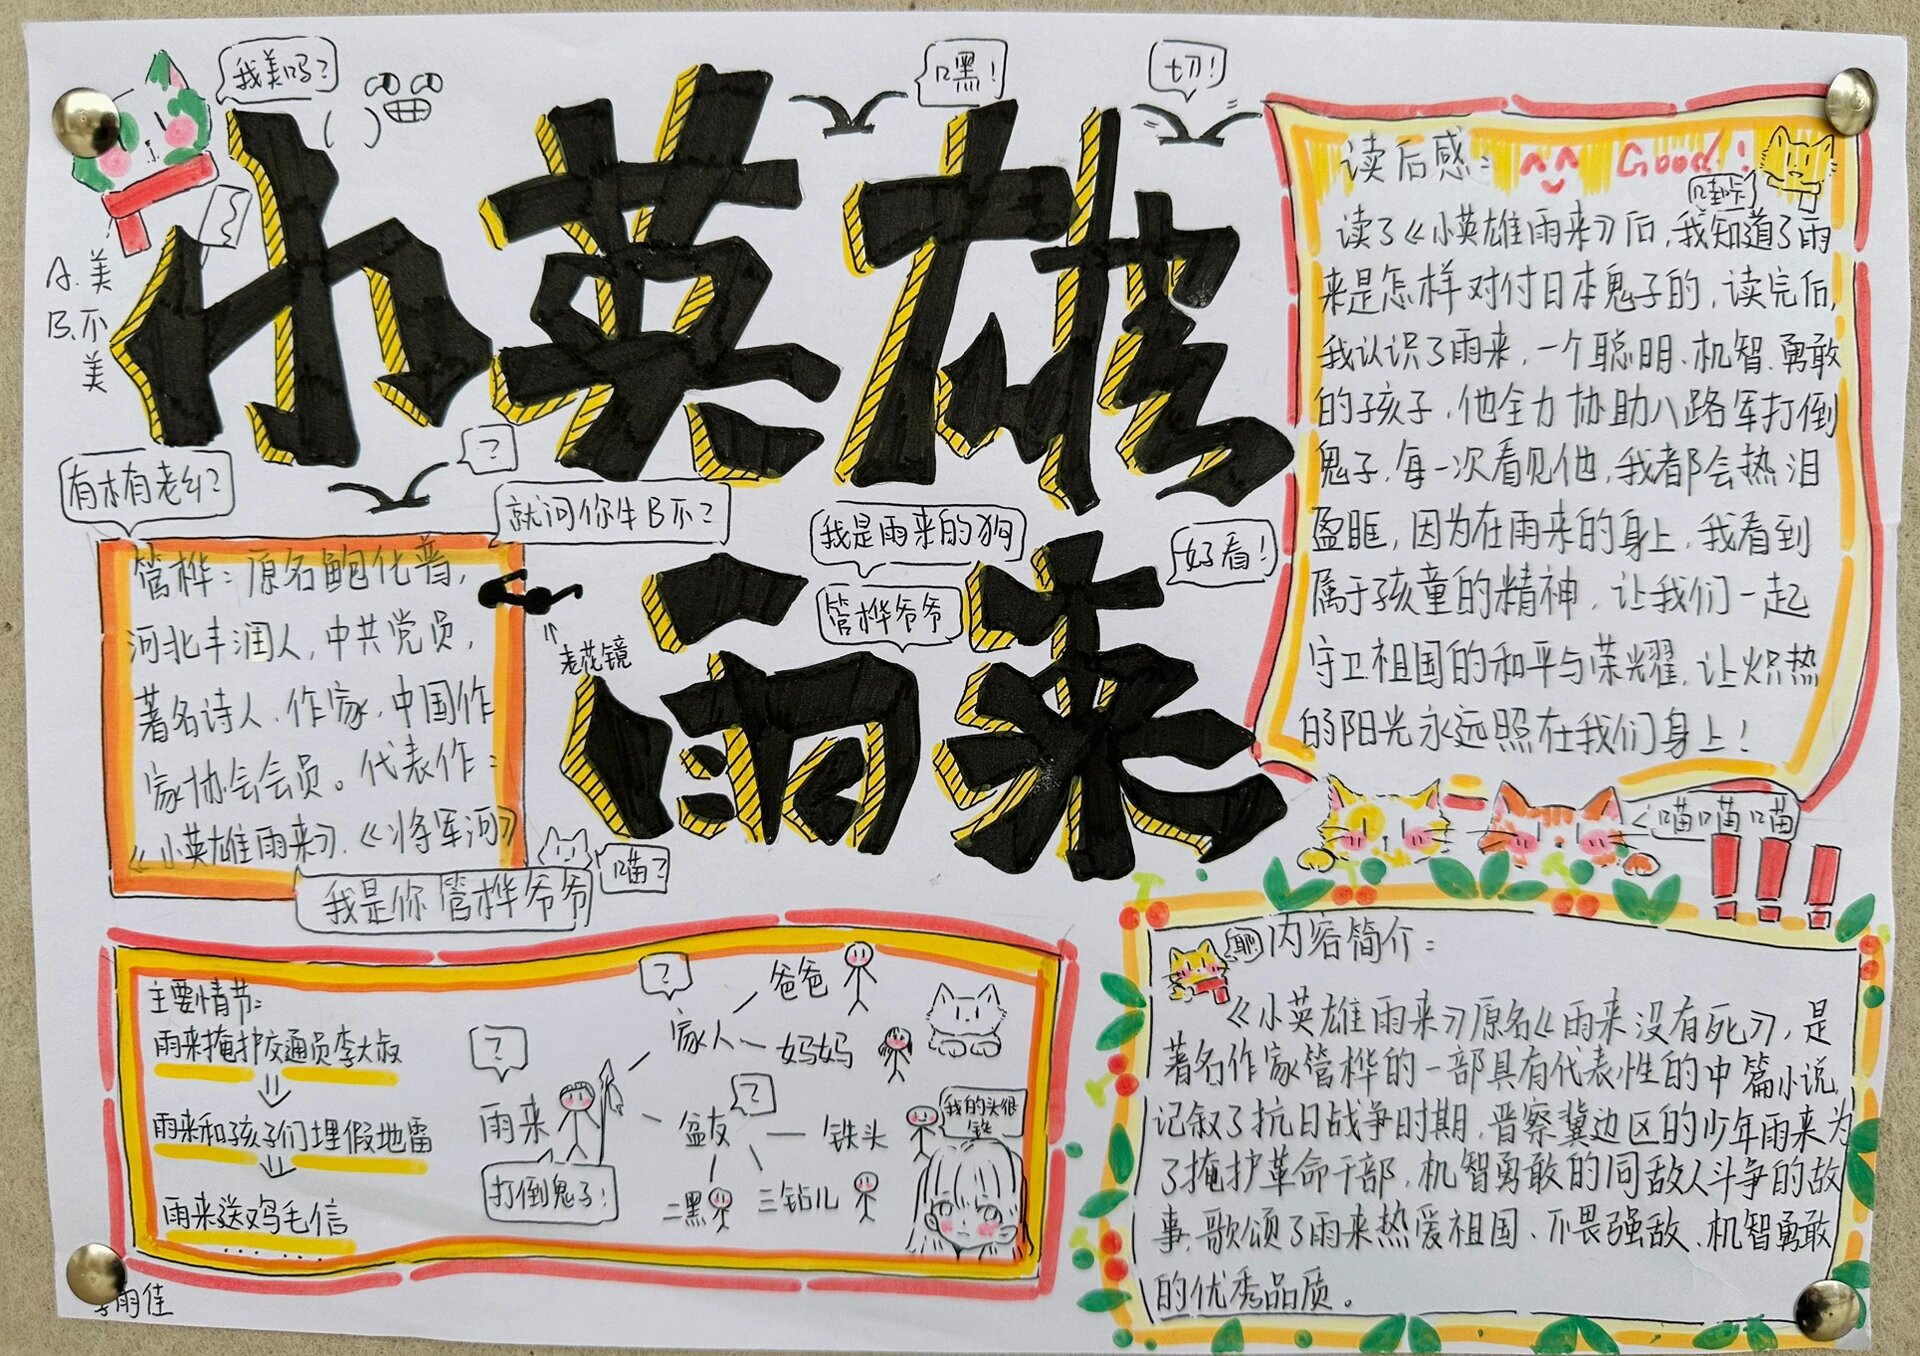 我美吗？
嘿！
切！
A.美
B.不
美
小英雄
雨来
有木有老乡？
？
就问你牛B不？
我是雨来的狗
管桦爷爷
好看！
老花镜
管桦：原名鲍化普，
河北丰润人，中共党员，
著名诗人、作家，中国作
家协会会员。代表作：
《小英雄雨来》、《将军河》
喵？
我是你管桦爷爷
读后感：
Good！
哇咔
读了《小英雄雨来》后，我知道了雨
来是怎样对付日本鬼子的，读完后，
我认识了雨来，一个聪明、机智、勇敢
的孩子，他全力协助八路军打倒
鬼子，每一次看见他，我都会热泪
盈眶，因为在雨来的身上，我看到
属于孩童的精神，让我们一起
守卫祖国的和平与荣耀，让炽热
的阳光永远照在我们身上！
喵喵喵
！！！
主要情节：
雨来掩护交通员李大叔
雨来和孩子们埋假地雷
雨来送鸡毛信
……
？
雨来
打倒鬼子！
？
家人
爸爸
妈妈
？
盆友
铁头
二黑
三钻儿
我的头很
铁
内容简介：
《小英雄雨来》原名《雨来没有死》，是
著名作家管桦的一部具有代表性的中篇小说，
记叙了抗日战争时期，晋察冀边区的少年雨来为
了掩护革命干部，机智勇敢的同敌人斗争的故
事，歌颂了雨来热爱祖国、不畏强敌、机智勇敢
的优秀品质。
雨佳